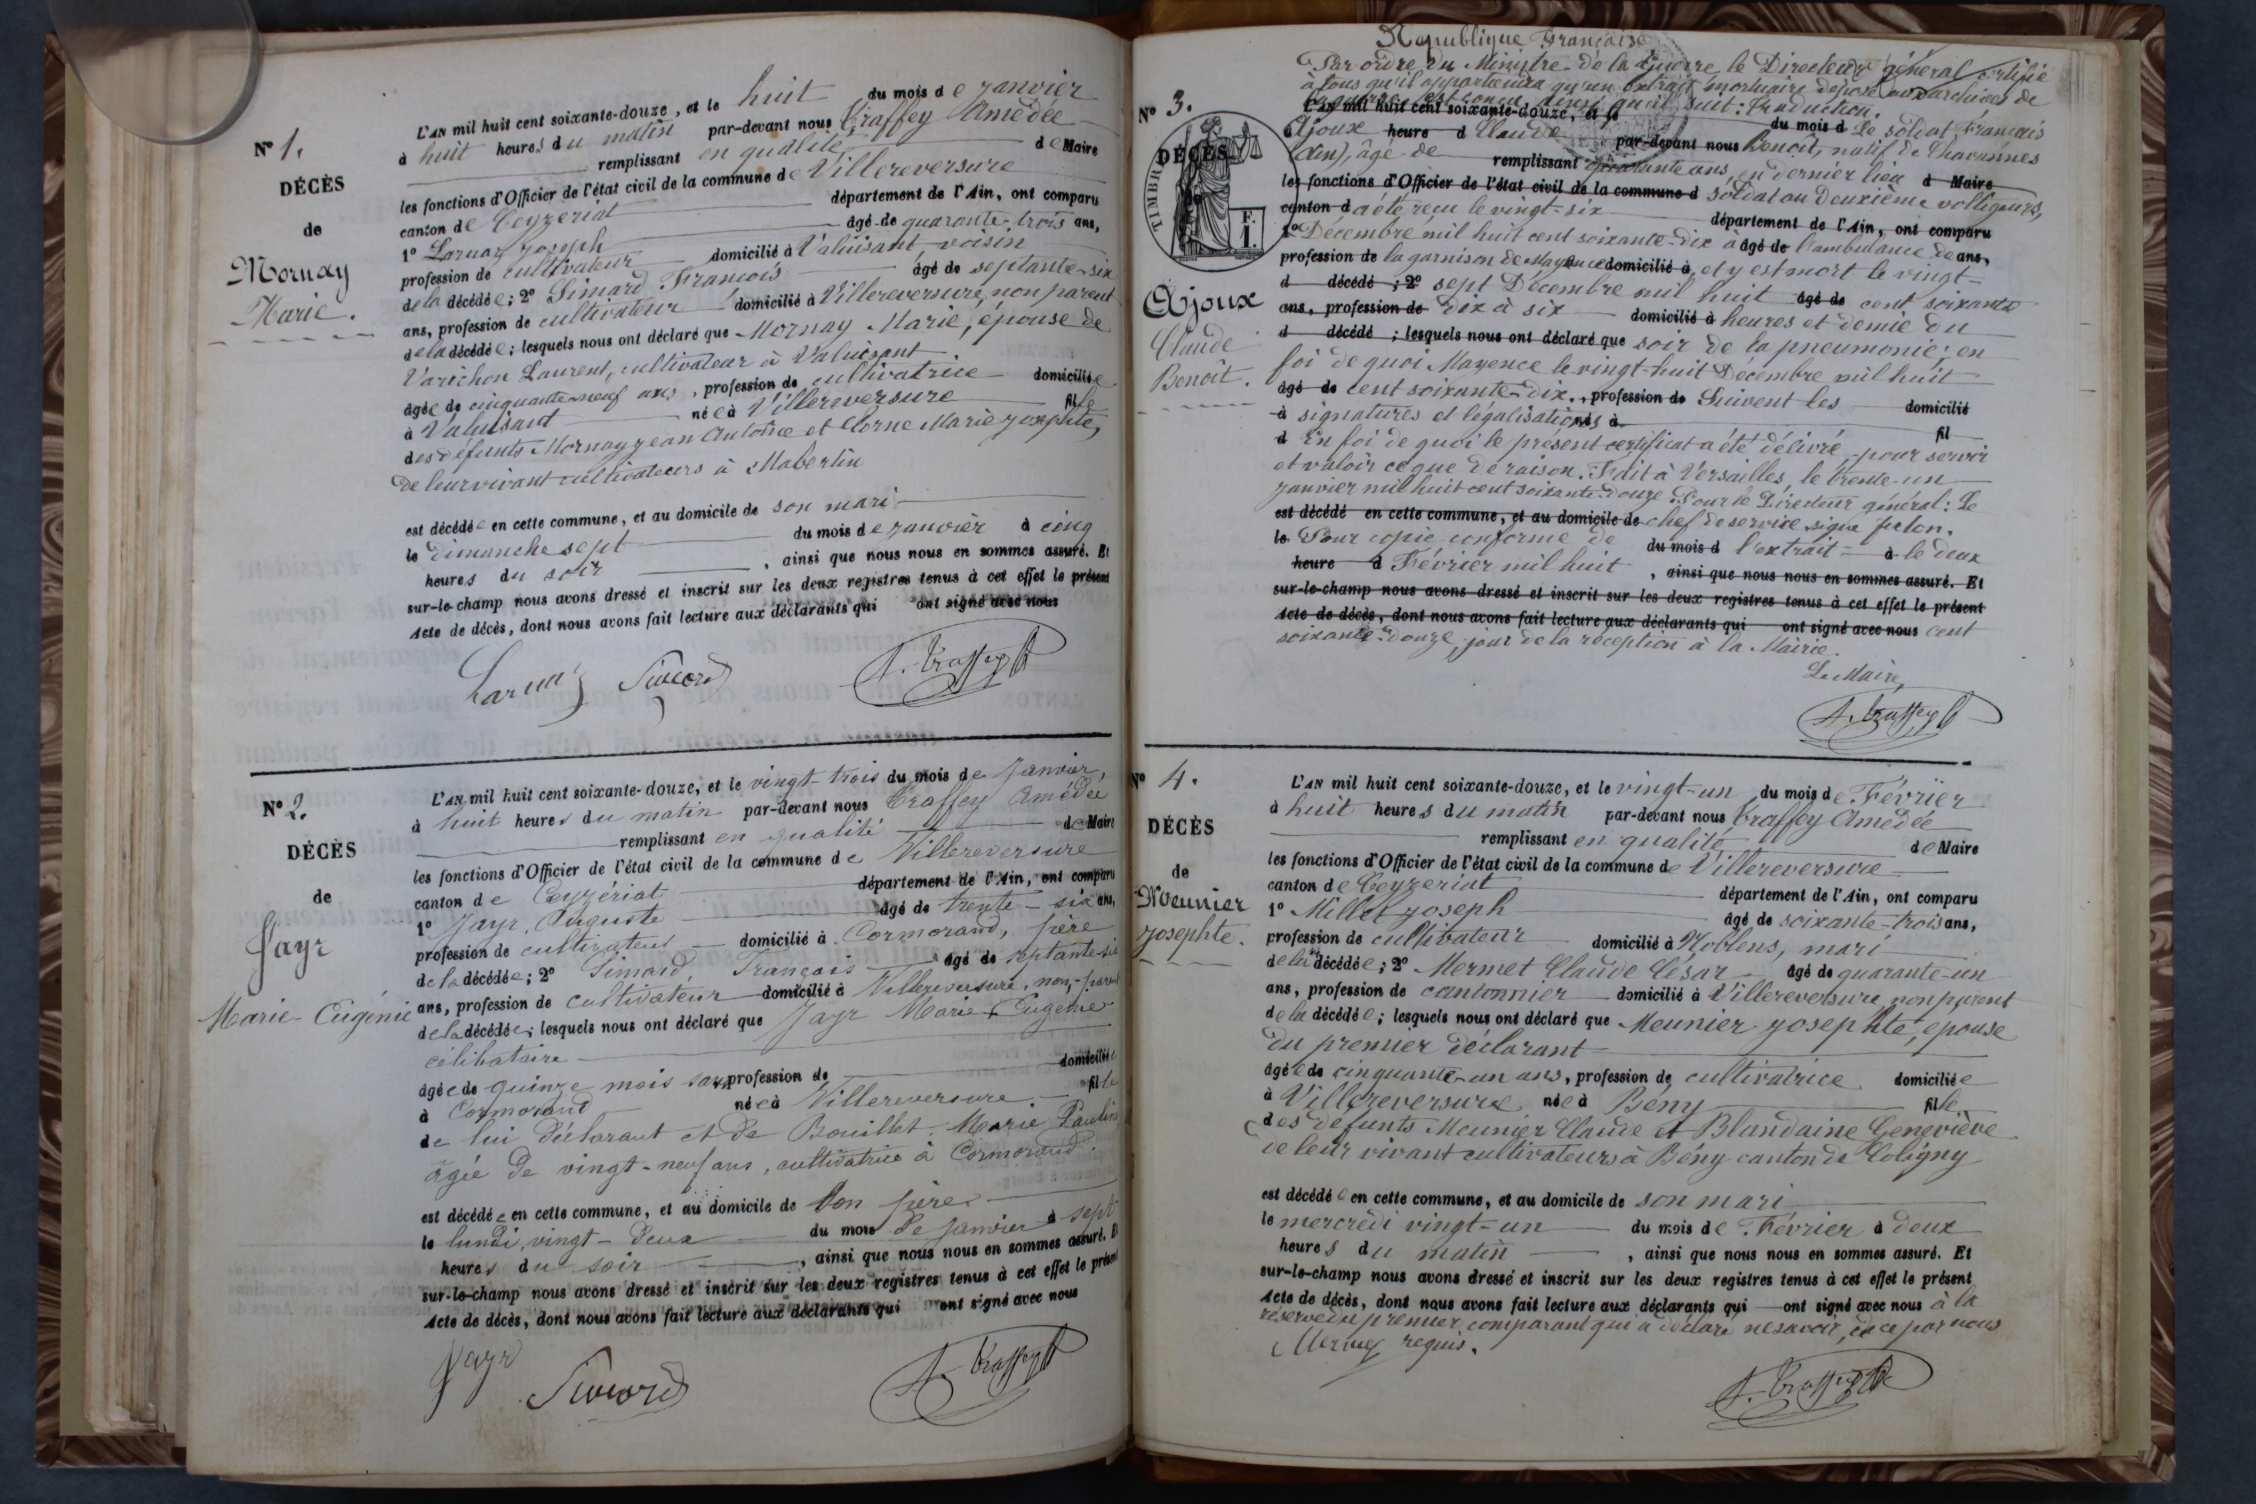 N° 1.
DÉCÈS
de
Mornay
Marie.
L'AN mil huit cent soixante-douze, et le huit du mois de janvier
à huit heures du matin par-devant nous Traffey Amédée
remplissant en qualité de Maire
les fonctions d'Officier de l'état civil de la commune de Villereversure
canton de Ceyzeriat département de l'Ain, ont comparu
1° Larnay Joseph âgé de quarante-trois ans,
profession de cultivateur domicilié à Valuisant voisin
de la décédée; 2° Simard François âgé de septante-six
ans, profession de cultivateur domicilié à Villereversure, non parent
de la décédée; lesquels nous ont déclaré que Mornay Marie, épouse de
Varichon Laurent, cultivateur à Valuisant
âgée de cinquante-neuf ans, profession de cultivatrice domiciliée
à Valuisant née à Villereversure fille
des défunts Mornay Jean Antoine et Clorne Marie Josephte,
de leur vivant cultivateurs à Mabertin
est décédée en cette commune, et au domicile de son mari
le dimanche sept du mois de janvier à cinq
heures du soir, ainsi que nous nous en sommes assuré. Et
sur-le-champ nous avons dressé et inscrit sur les deux registres tenus à cet effet le présent
Acte de décès, dont nous avons fait lecture aux déclarants qui ont signé avec nous
Larnay Simard A. Traffey
N° 2.
DÉCÈS
de
Jayr
Marie-Eugénie
L'AN mil huit cent soixante-douze, et le vingt-trois du mois de Janvier,
à huit heures du matin par-devant nous Traffey Amédée
remplissant en qualité de Maire
les fonctions d'Officier de l'état civil de la commune de Villereversure
canton de Ceyzériat département de l'Ain, ont comparu
1° Jayr, Auguste âgé de trente-six ans,
profession de cultivateur domicilié à Cormorand, père
de la décédée; 2° Simard, François âgé de septante-six
ans, profession de cultivateur domicilié à Villereversure, non-parent
de la décédée; lesquels nous ont déclaré que Jayr Marie Eugénie
célibataire
âgée de quinze mois sans profession de domiciliée
à Cormorand née à Villereversure fille
de lui déclarant et de Bouillet Marie Pauline
âgée de vingt-neuf ans, cultivatrice à Cormorand.
est décédée en cette commune, et au domicile de son père
le lundi, vingt-deux du mois de janvier à sept
heures du soir, ainsi que nous nous en sommes assuré. Et
sur-le-champ nous avons dressé et inscrit sur les deux registres tenus à cet effet le présent
Acte de décès, dont nous avons fait lecture aux déclarants qui ont signé avec nous
Jayr
Simard A. Traffey
République Française
Par ordre du Ministre de la Guerre, le Directeur général certifie
à tous qu'il appartiendra qu'un extrait mortuaire déposé aux archives de
la guerre est conçu ainsi qu'il suit: Traduction.
N° 3.
TIMBRE
F. I.
DÉCÈS
de
Ajoux
Claude
Benoît.
L'AN mil huit cent soixante-douze, et le du mois d Le soldat Français
Ajoux heure d Claude par-devant nous Benoît, natif de Chavannes
(Ain), âgé de remplissant quarante ans, en dernier lieu d Maire
les fonctions d'Officier de l'état civil de la commune d soldat au deuxième voltigeurs,
canton d a été reçu le vingt-six département de l'Ain, ont comparu
1° Décembre mil huit cent soixante-dix à âgé de l'ambulance de ans,
profession de la garnison de Mayence domicilié à, et y est mort le vingt-
d décédé ; 2° sept Décembre mil huit âgé de cent soixante
ans, profession de dix à six domicilié à heures et demie du
d décédé ; lesquels nous ont déclaré que soir de la pneumonie; en
foi de quoi Mayence le vingt-huit Décembre mil huit
âgé de cent soixante-dix., profession de Suivent les domicilié
à signatures et légalisations né à fil
d En foi de quoi le présent certificat a été délivré pour servir
et valoir ce que de raison. Fait à Versailles, le trente-un
janvier mil huit cent soixante-douze. Pour le Directeur général: Le
est décédé en cette commune, et au domicile de chef de service signé
le Pour copie conforme de du mois d l'extrait à le deux
heure d Février mil huit, ainsi que nous nous en sommes assuré. Et
sur-le-champ nous avons dressé et inscrit sur les deux registres tenus à cet effet le présent
Acte de décès, dont nous avons fait lecture aux déclarants qui ont signé avec nous cent
soixante-douze, jour de la réception à la Mairie.
Le Maire,
A. Traffey
N° 4.
DÉCÈS
de
Meunier
Josephte.
L'AN mil huit cent soixante-douze, et le vingt-un du mois de Février
à huit heures du matin par-devant nous Traffey Amédée
remplissant en qualité de Maire
les fonctions d'Officier de l'état civil de la commune de Villereversure
canton de Ceyzeriat département de l'Ain, ont comparu
1° Millet Joseph âgé de soixante-trois ans,
profession de cultivateur domicilié à Noblens, mari
de la décédée; 2° Mermet Claude César âgé de quarante-un
ans, profession de cantonnier domicilié à Villereversure, non parent
de la décédée; lesquels nous ont déclaré que Meunier Josephte, épouse
du premier déclarant
âgée de cinquante-un ans, profession de cultivatrice domiciliée
à Villereversure née à Bény fille
des défunts Meunier Claude et Blandaine Geneviève
de leur vivant cultivateurs à Bény canton de Coligny
est décédée en cette commune, et au domicile de son mari
le mercredi vingt-un du mois de Février à deux
heures du matin, ainsi que nous nous en sommes assuré. Et
sur-le-champ nous avons dressé et inscrit sur les deux registres tenus à cet effet le présent
Acte de décès, dont nous avons fait lecture aux déclarants qui ont signé avec nous à la
réserve du premier comparant qui a déclaré ne savoir, de ce par nous
Mermet requis.
A. Traffey